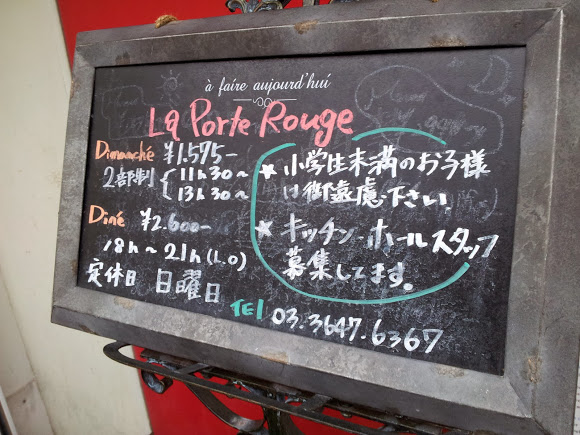 à faire aujourd'hui
La Porte Rouge
Dimanché ¥1.575-
2部制 { 11h30～
13h30～
Diné ¥2.600-
18h～21h(L.O)
定休日 日曜日
★小学生未満のお子様
は御遠慮下さい
★キッチン・ホールスタッフ
募集してます。
Tel 03.3647.6367